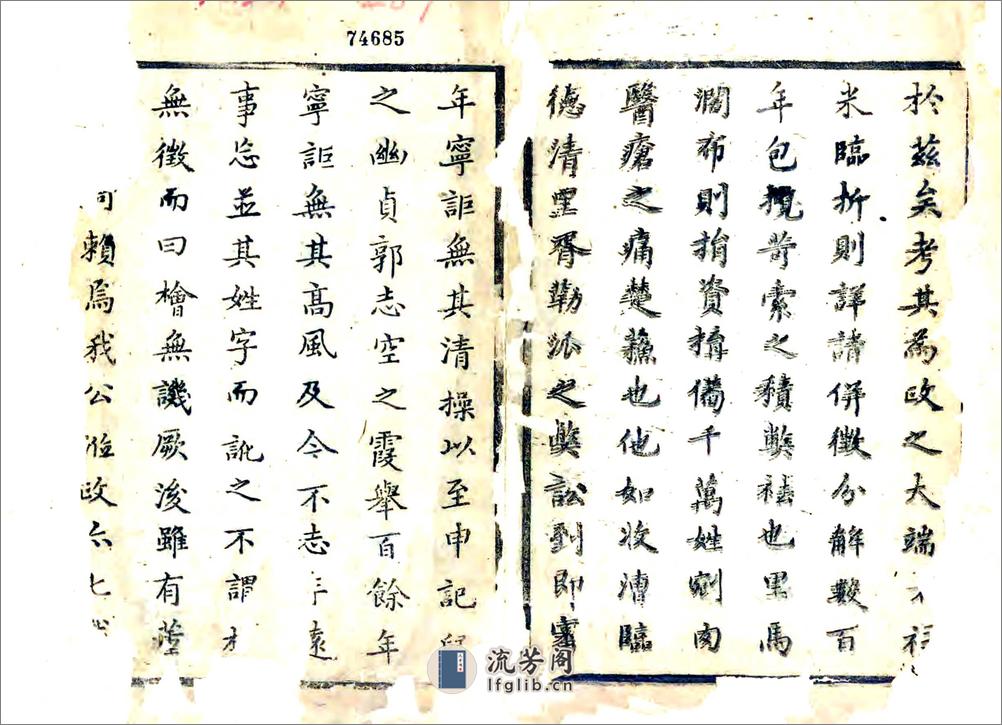 74685
於茲矣考其為政之大端
米臨折則詳請併徵分解數百
年包攬苛索之積獘袪也里馬
澗布則捐資備千萬姓剜肉
醫瘡之痛楚蘓也他如收漕臨
德清里胥勒派之獘訟到即
年寧詎無其清操以至申記
之幽貞郭志空之霞舉百餘年
寧詎無其高風及今不志年遠
事忘並其姓字而訛之不謂
無徵而曰檜無譏厥後雖有
何賴焉我公涖政六七
流芳阁
lfglib.cn